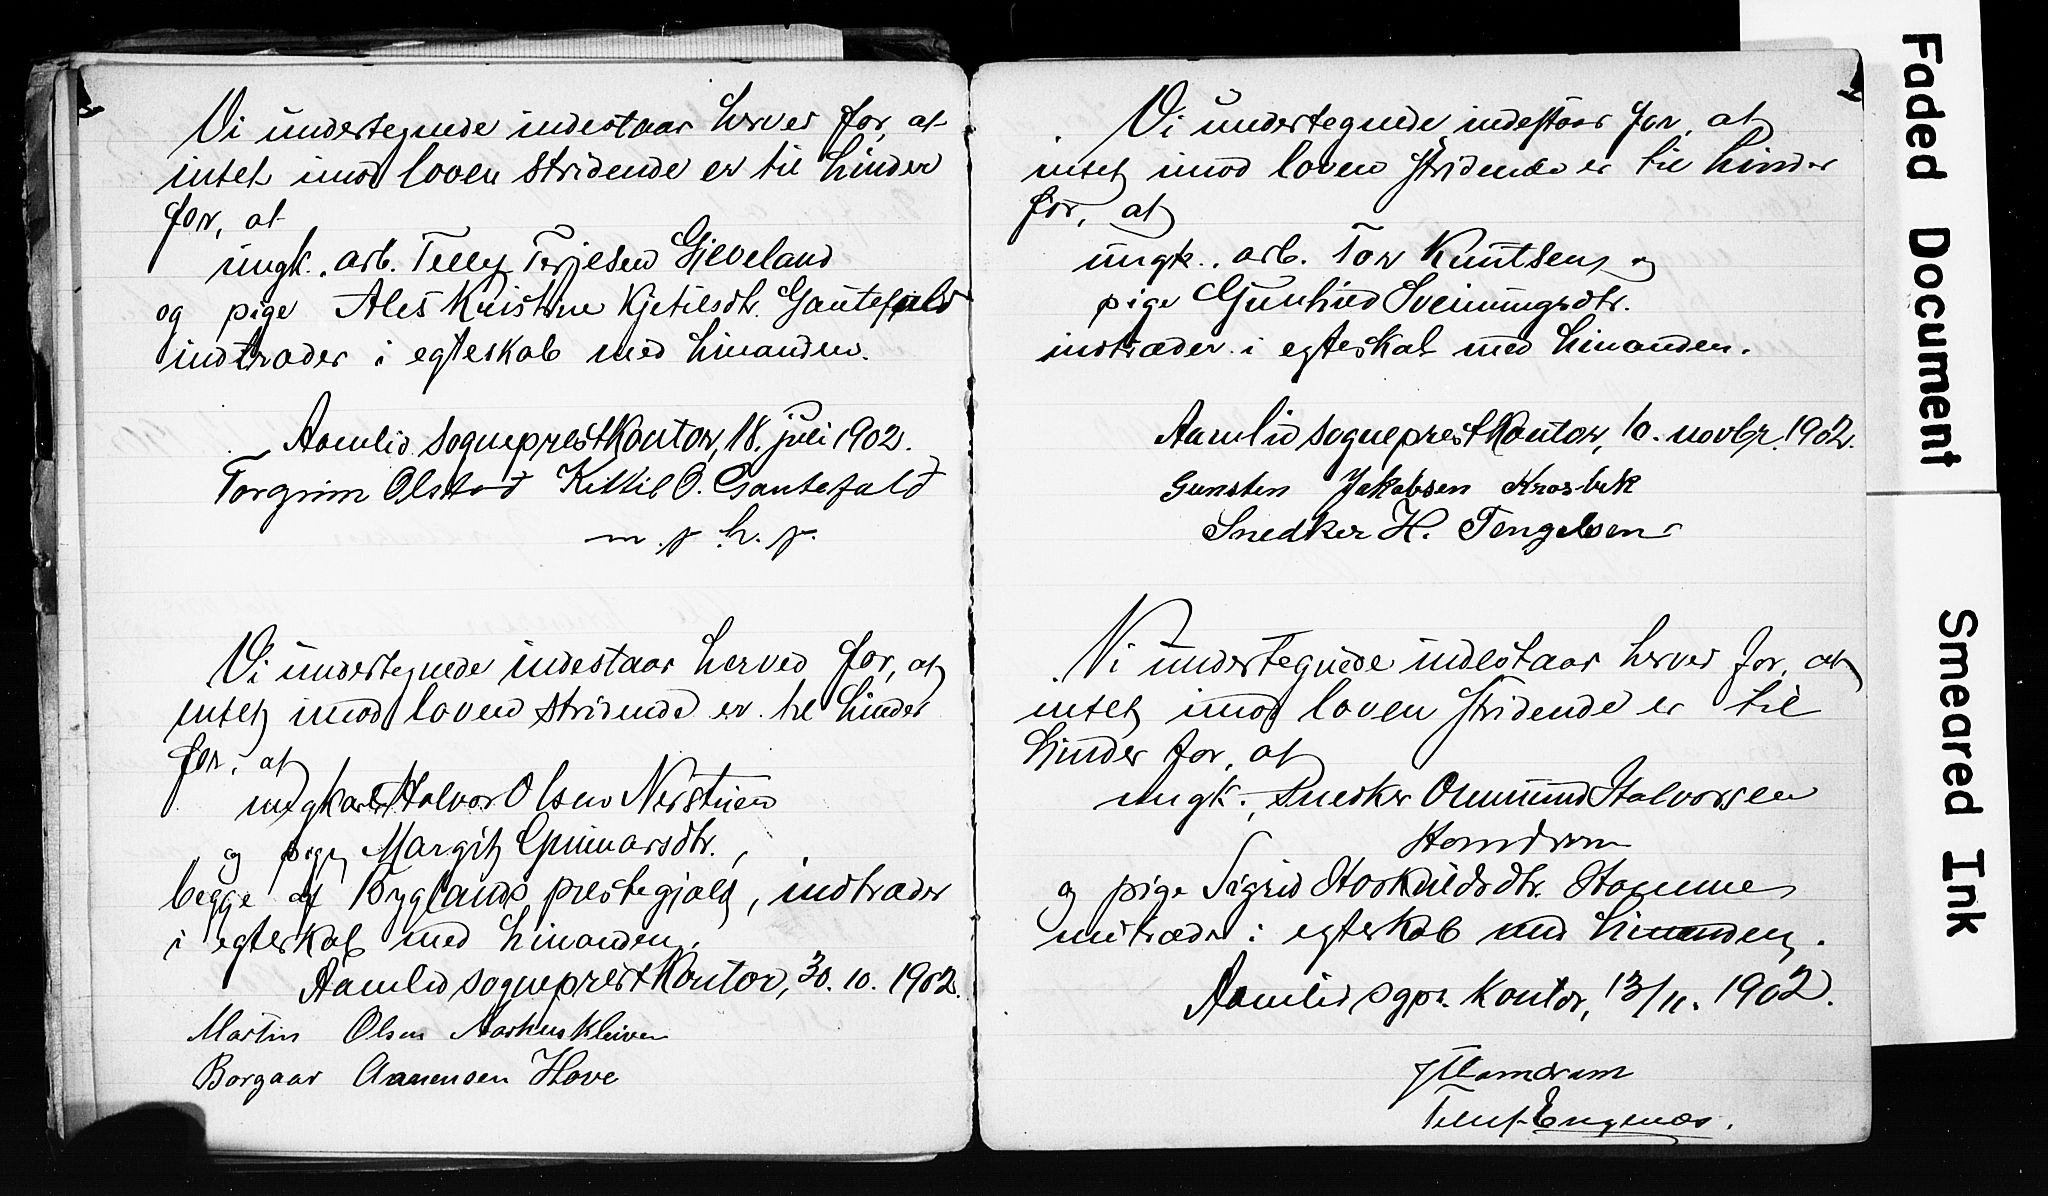 Vi undertegnede indestaar herved for, at
intet imod loven stridende er til hinder
for, at
ungk. arb. Tellef Terjesen Gjeveland
og pige Ales Kristine Kjetilsdtr. Gautefald
indtræder i egteskab med hinanden.
Aamlid sogneprestkontor, 18. juli 1902.
Torgrim Olstad Kittil O. Gautefald
m. p. h. p.
Vi undertegnede indestaar herved for, at
intet imod loven stridende er til hinder
for, at
ungkarl Halvor Olsen Nerstuen
og pige Margit Gunnarsdtr.,
begge af Byglands prestegjeld, indtræder
i egteskab med hinanden.
Aamlid sogneprestkontor, 30. 10. 1902.
Martin Olsen Aarhuskleiven
Borgaar Aanensen Hove
Vi undertegnede indestaar for, at
intet imod loven stridende er til hinder
for, at
ungk. arb. Tor Knutsen og
pige Gunhild Sveinungsdtr.
indtræder i egteskab med hinanden.
Aamlid sogneprestkontor, 10. novbr. 1902.
Gunsten Jakobsen Krosbek
Snedker H. Tengelsen
Vi undertegnede indestaar herved for, at
intet imod loven stridende er til
hinder for, at
ungk. snedker Ommund Halvorsen
Homdrom
og pige Sigrid Hoskuldsdtr. Homme
indtræder i egteskab med hinanden.
Aamlid sgpr. kontor, 13/11. 1902.
J Homdrom
Tellef Engenæs.
Faded Document
Smeared Ink